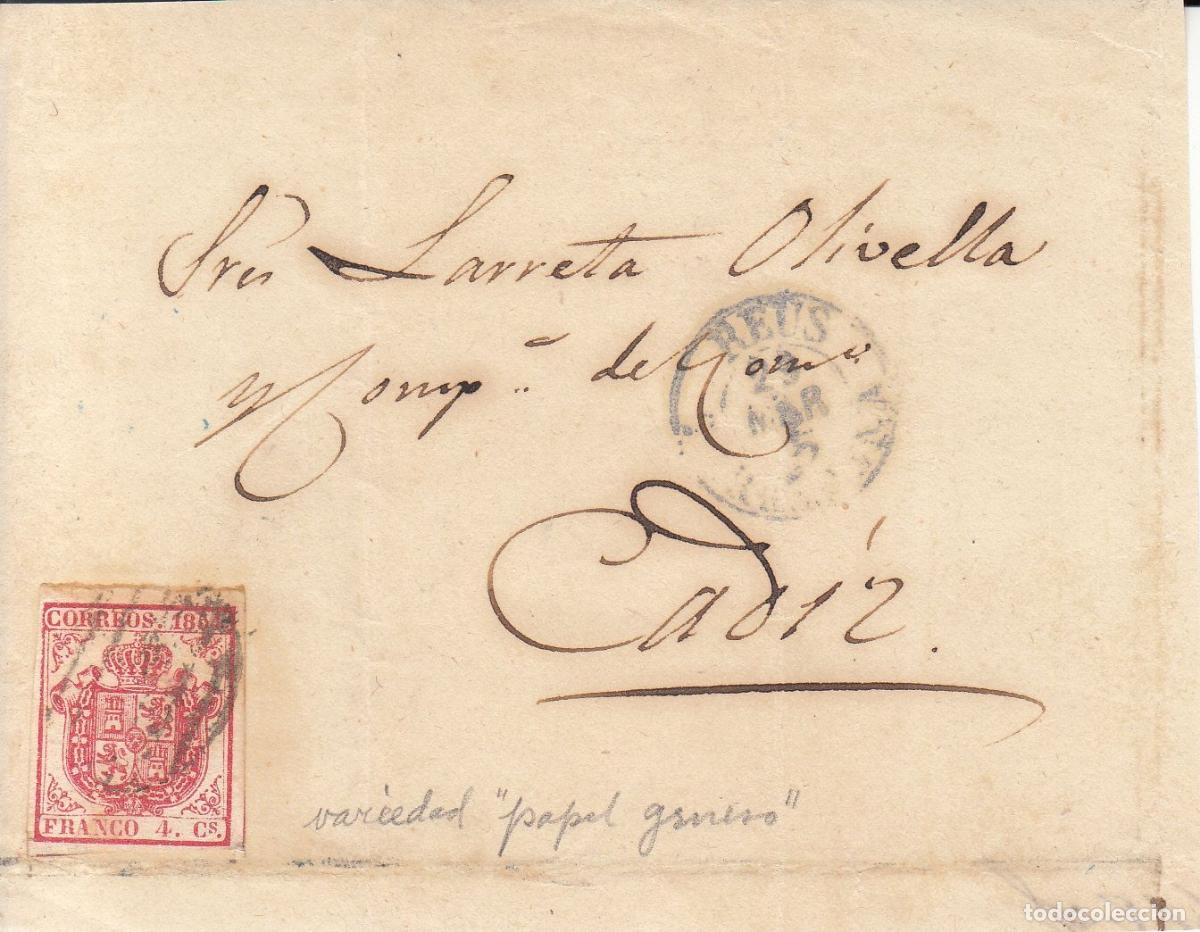 Sres Larreta Olivella
y Compª. de Comº
Cadiz.
REUS
29
MAR
CORREOS. 1854
FRANCO 4. Cs.
variedad "papel grueso"
todocoleccion